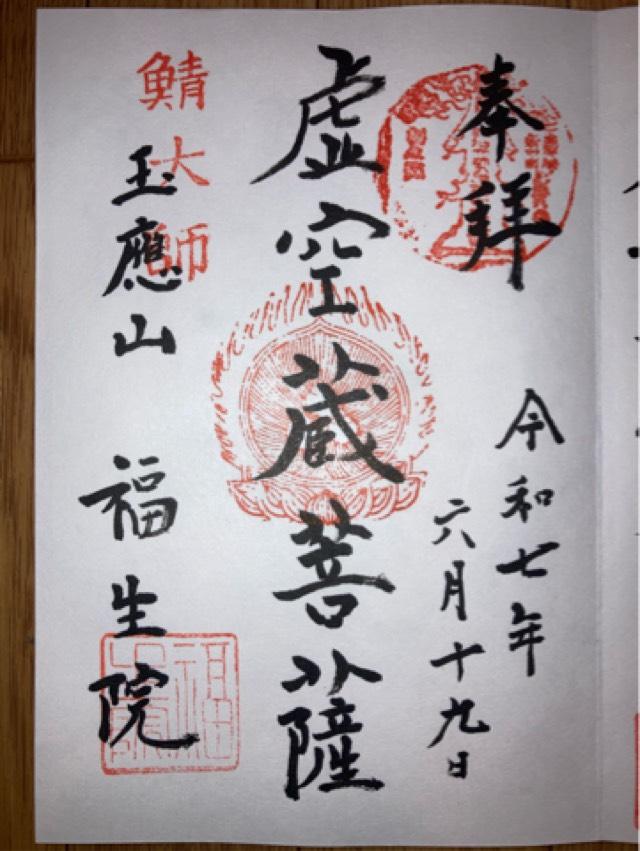 奉拝
令和七年
六月十九日
虚空蔵菩薩
鯖大師
玉應山 福生院